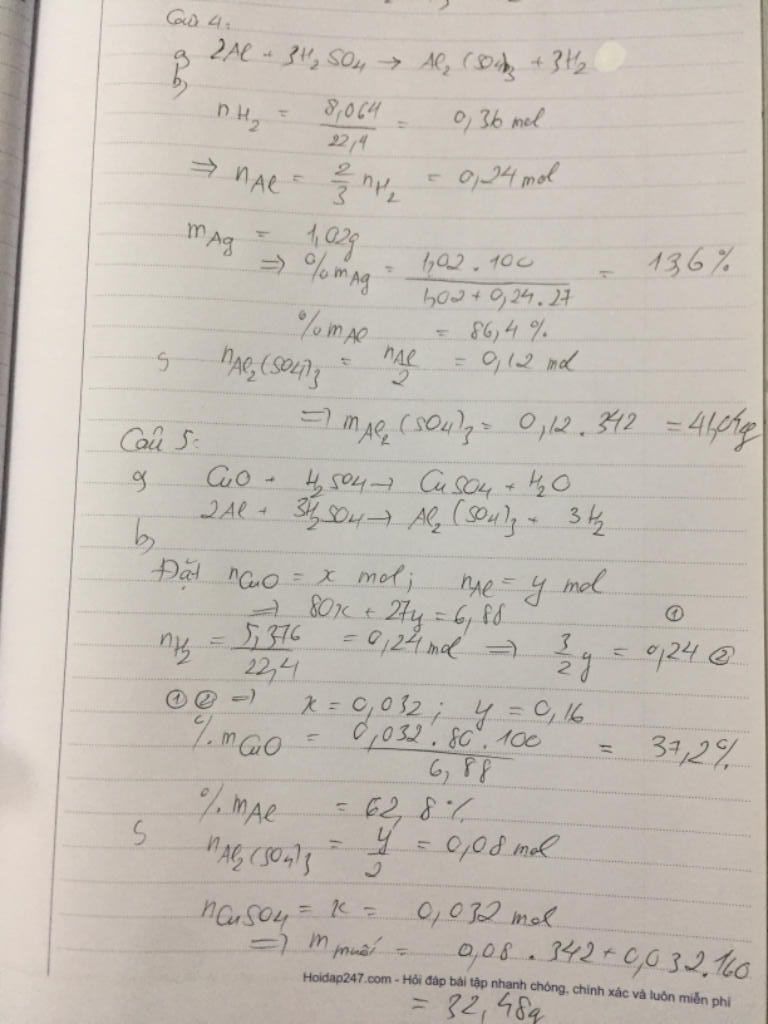 Câu 4:
a, 2Al + 3H₂SO₄ → Al₂(SO₄)₃ + 3H₂
b,
nH₂ = 8,064 / 22,4 = 0,36 mol
⇒ nAl = 2/3 nH₂ = 0,24 mol
mAg = 1,02g
⇒ %mAg = 1,02 . 100 / 1,02 + 0,24 . 27 = 13,6%
%mAl = 86,4%
c, nAl₂(SO₄)₃ = nAl / 2 = 0,12 mol
⇒ mAl₂(SO₄)₃ = 0,12 . 342 = 41,04g
Câu 5:
a, CuO + H₂SO₄ → CuSO₄ + H₂O
2Al + 3H₂SO₄ → Al₂(SO₄)₃ + 3H₂
b,
Đặt nCuO = x mol; nAl = y mol
⇒ 80x + 27y = 6,88 ①
nH₂ = 5,376 / 22,4 = 0,24 mol ⇒ 3/2 y = 0,24 ②
① ② ⇒ x = 0,032; y = 0,16
%mCuO = 0,032 . 80 . 100 / 6,88 = 37,2%
%mAl = 62,8%
c, nAl₂(SO₄)₃ = y / 2 = 0,08 mol
nCuSO₄ = x = 0,032 mol
⇒ m muối = 0,08 . 342 + 0,032 . 160
Hoidap247.com - Hỏi đáp bài tập nhanh chóng, chính xác và luôn miễn phí
= 32,48g